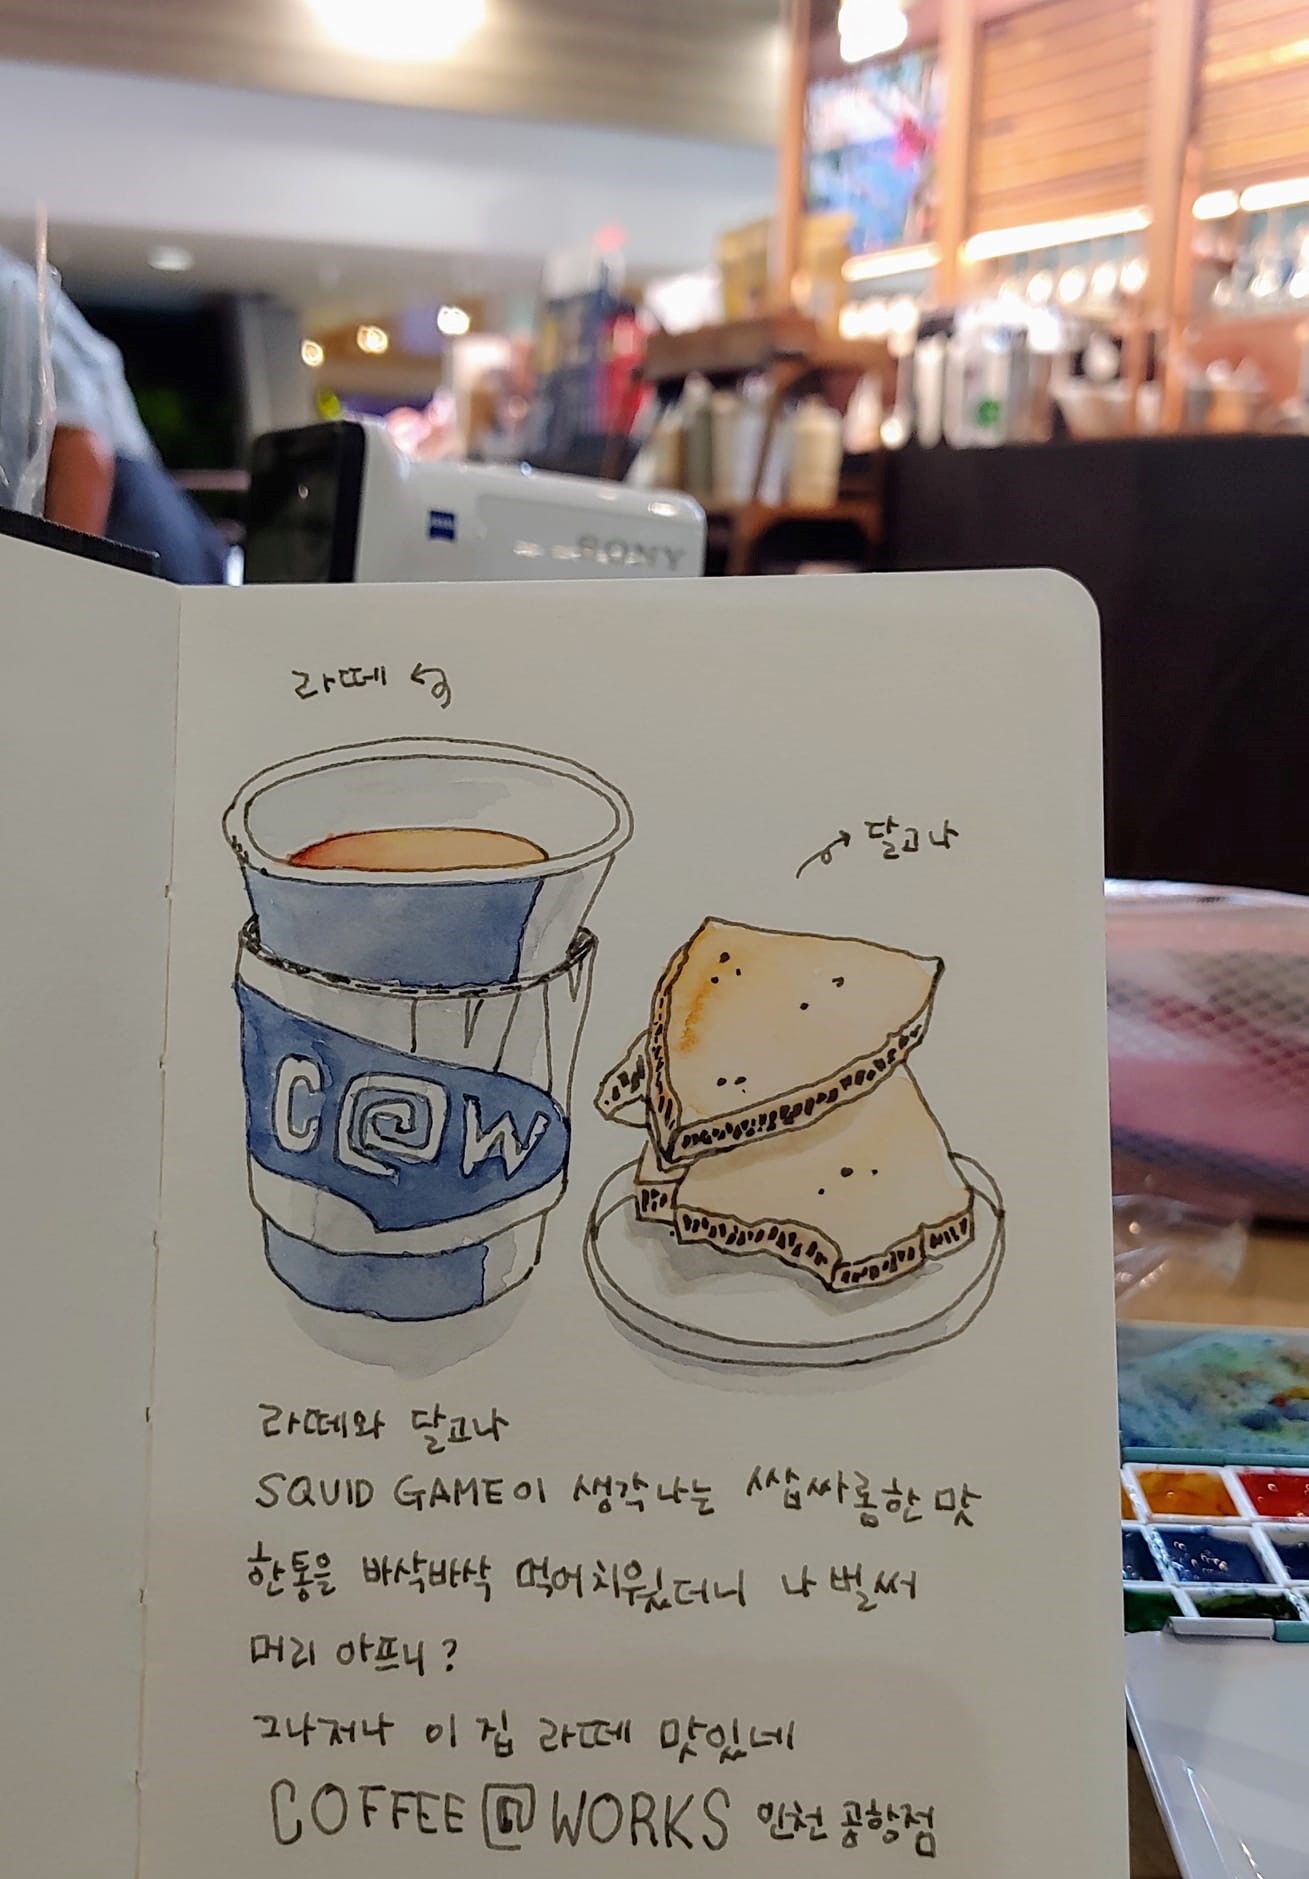 SONY
라떼
달고나
C@W
라떼와 달고나
SQUID GAME이 생각나는 쌉싸롬한 맛
한통을 바삭바삭 먹어치웠더니 나 벌써
머리 아프니?
그나저나 이 집 라떼 맛있네
COFFEE@WORKS 인천공항점